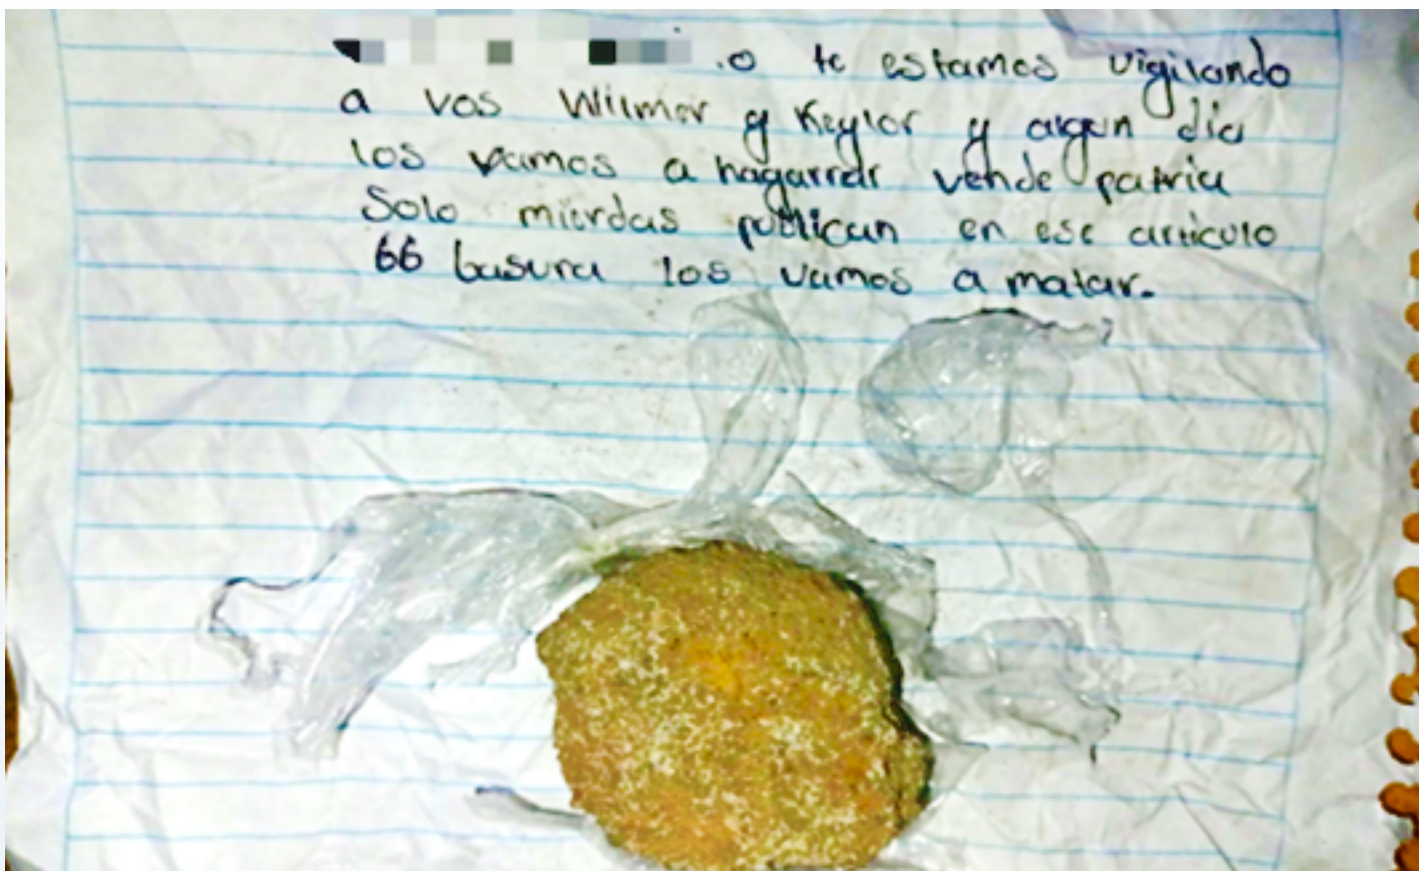 .o te estamos vigilando
a vos Wilmor y Keylor y algun dia
los vamos a hagarrar vende patria
Solo mierdas publican en ese articulo
66 basura los vamos a matar.